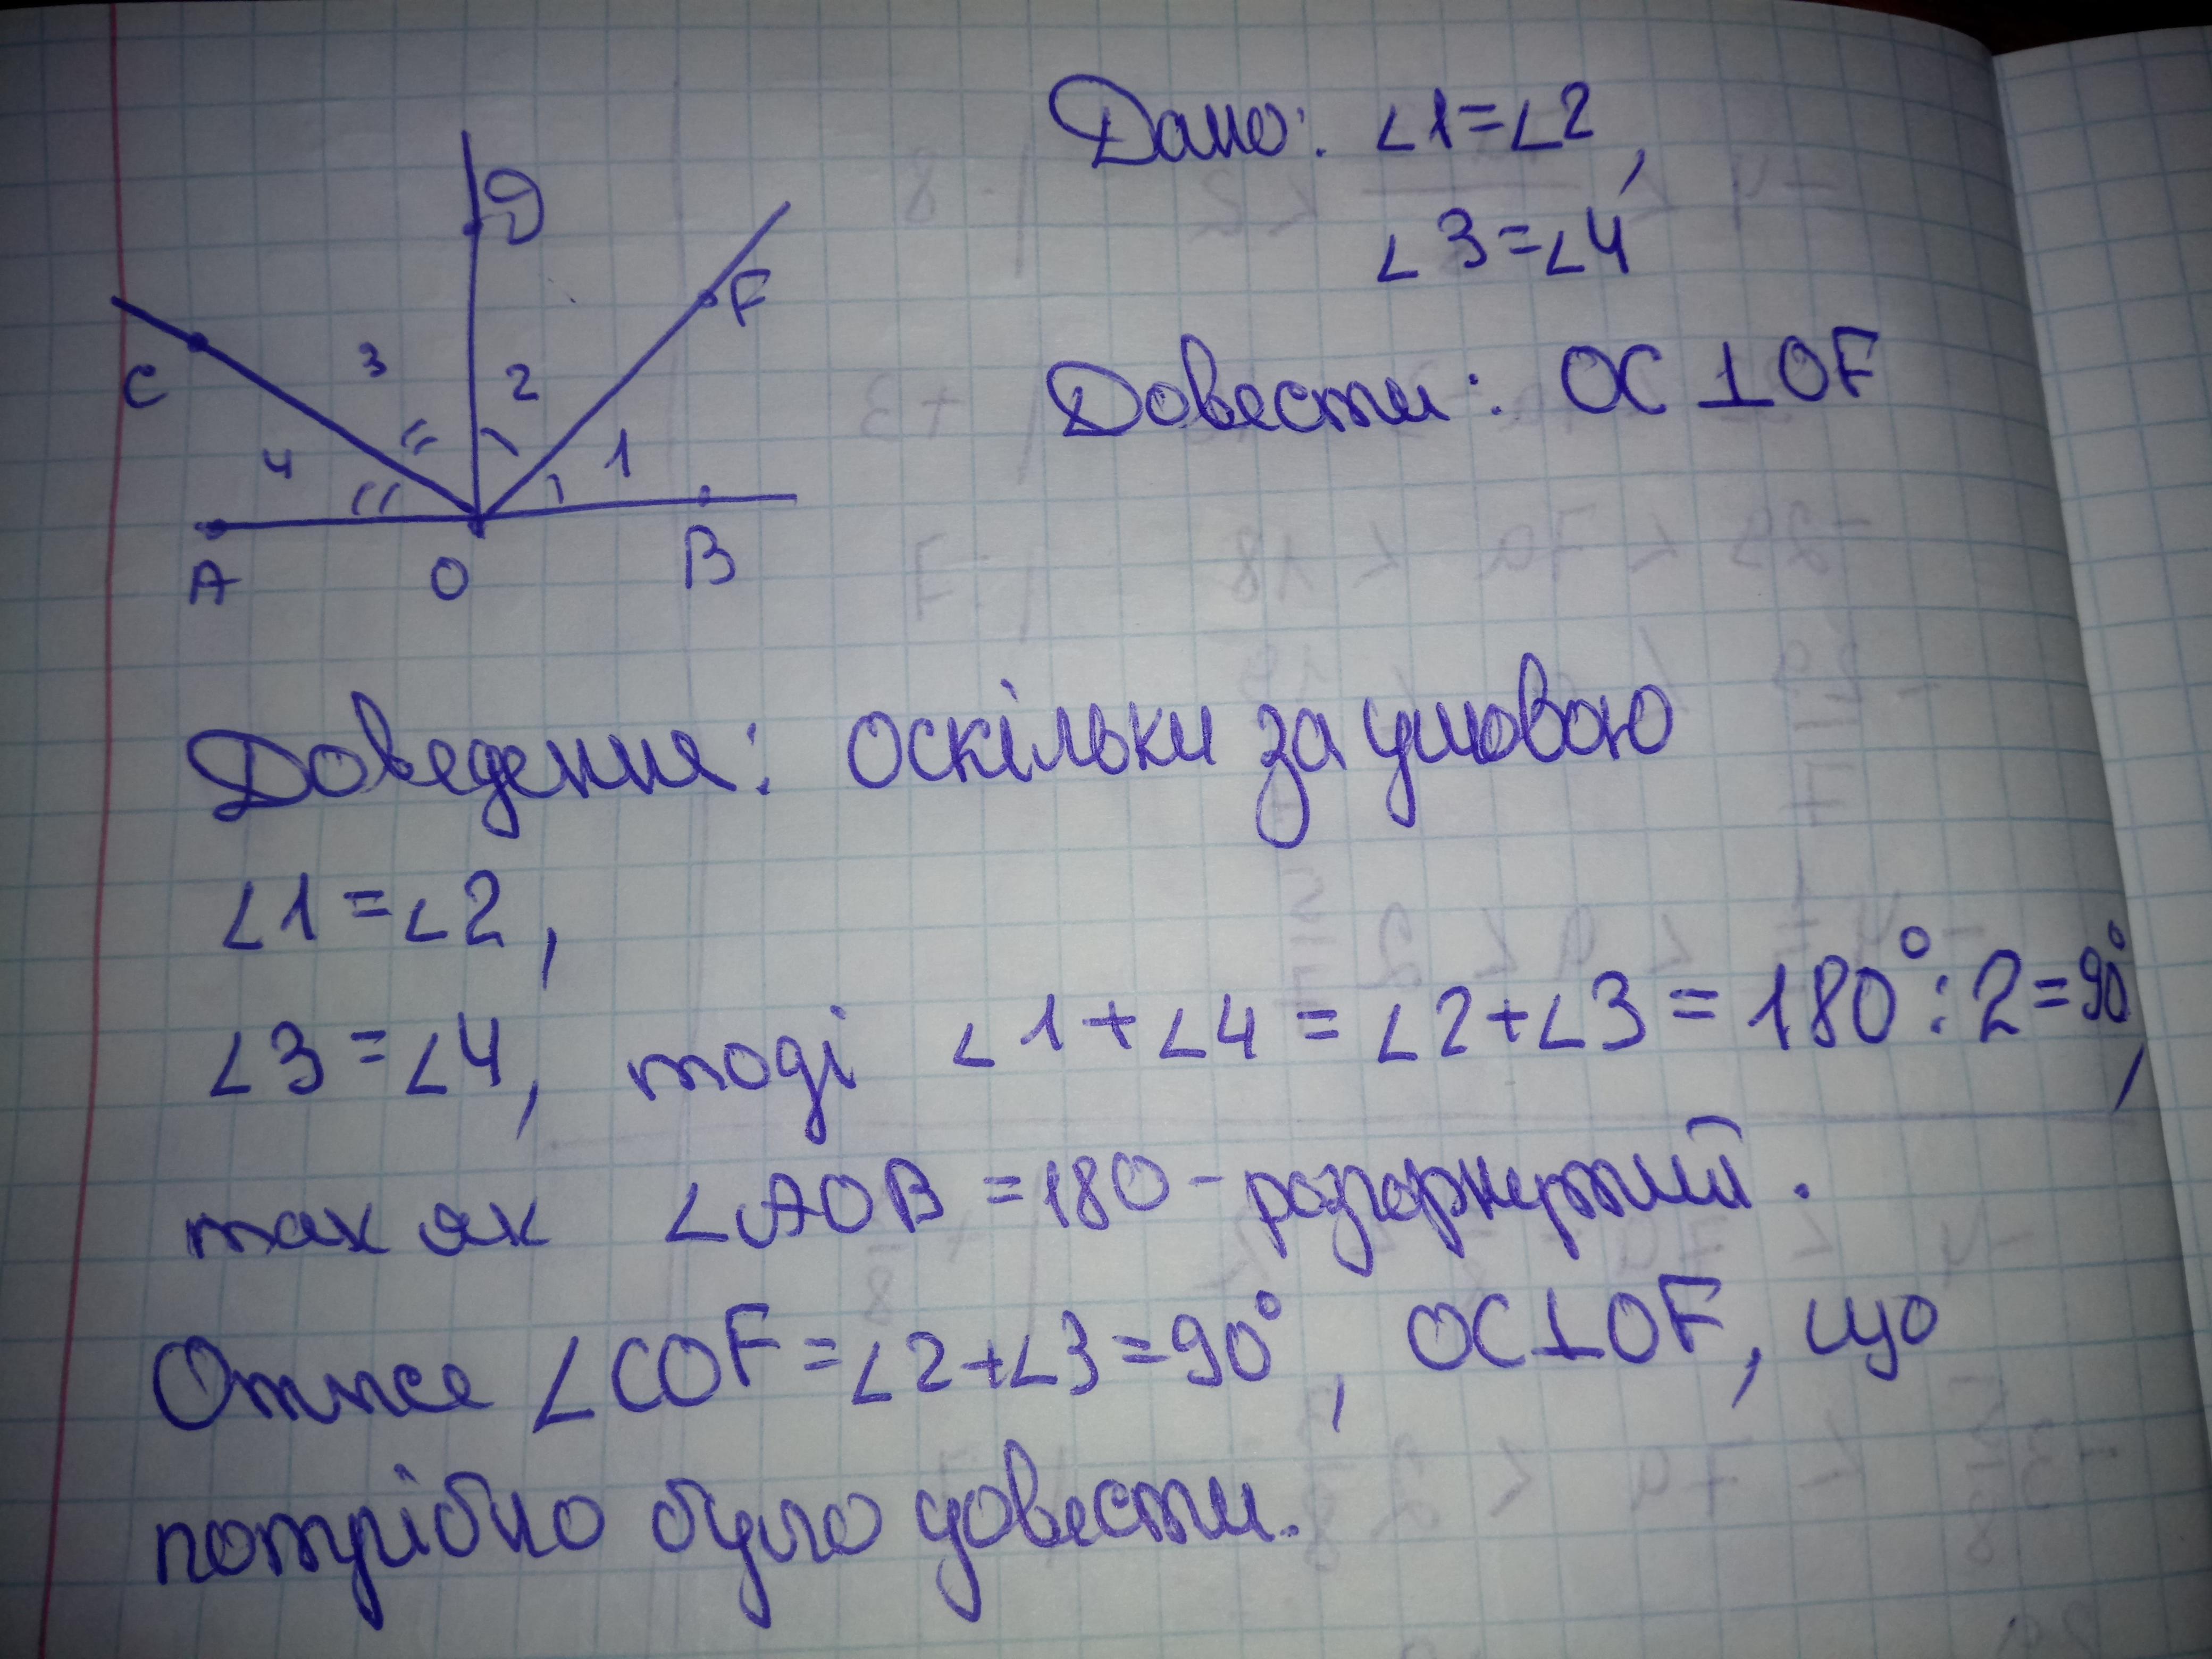 Дано: ∠1=∠2,
∠3=∠4
Довести: OC⊥OF
D
F
C
3
2
4
1
A
O
B
Доведення: оскільки за умовою
∠1=∠2,
∠3=∠4, тоді ∠1+∠4=∠2+∠3=180°:2=90°,
так як ∠AOB=180-розгорнутий.
Отже ∠COF=∠2+∠3=90°, OC⊥OF, що
потрібно було довести.